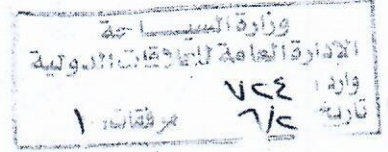 وزارة السياحة
الادارة العامة للعلاقات الدولية
وارد: ٧٢٤
تاريخ ٦/٢ مرفقات: ١